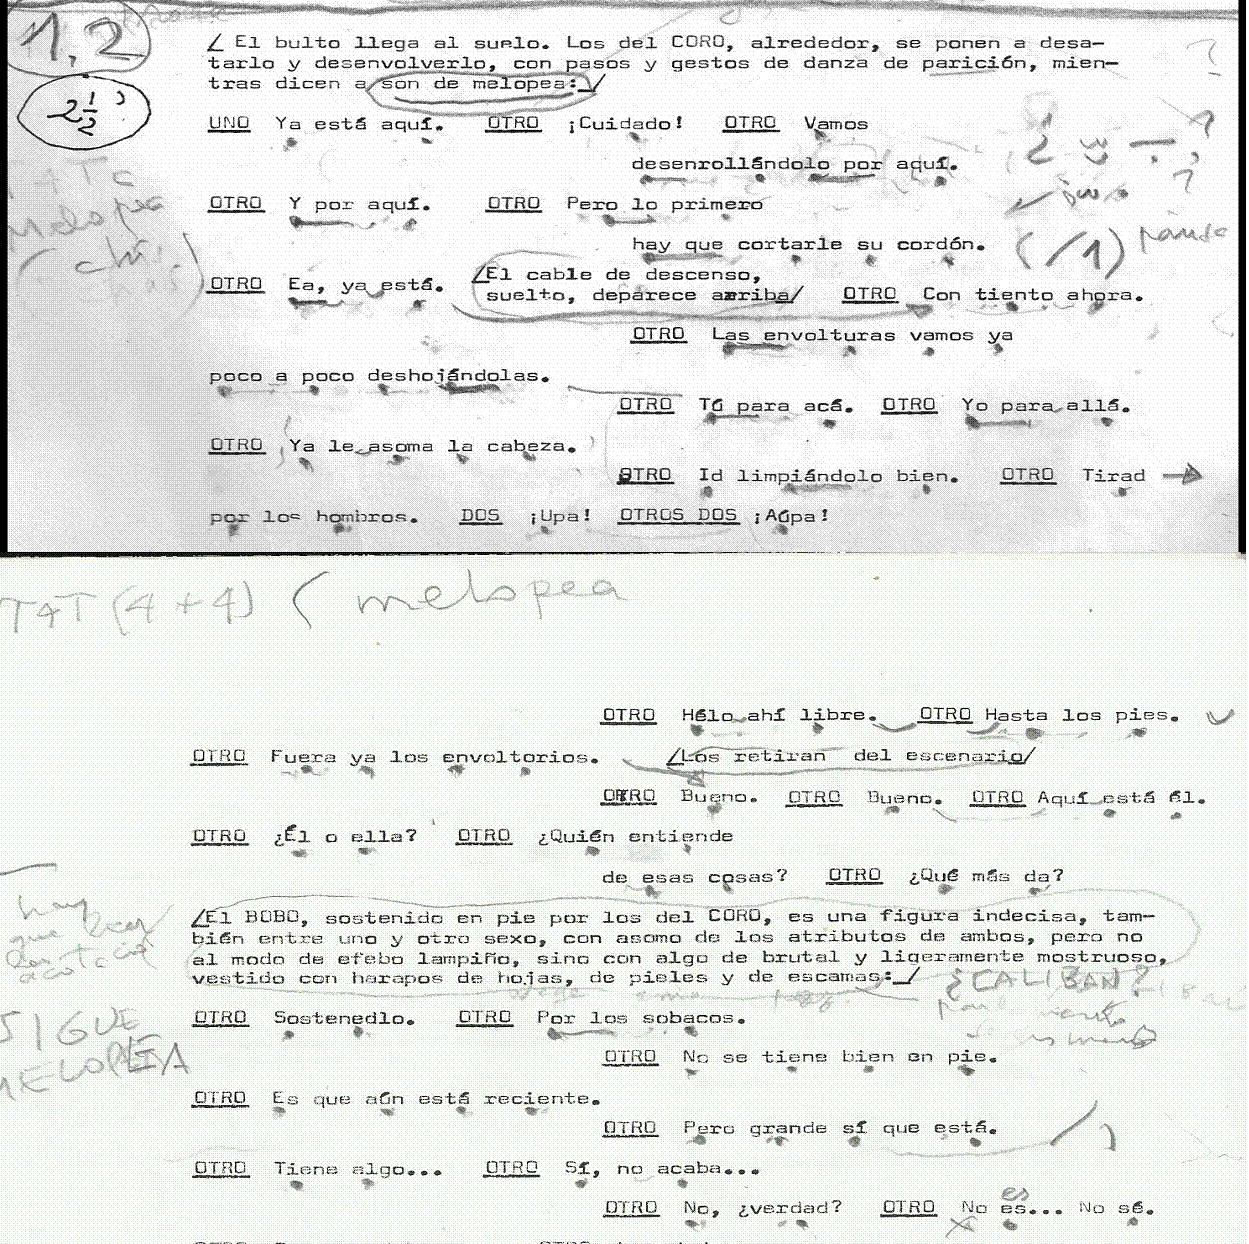 1,2
/ El bulto llega al suelo. Los del CORO, alrededor, se ponen a desa-
tarlo y desenvolverlo, con pasos y gestos de danza de parición, mien-
tras dicen a son de melopea:_/
2 1/2
UNO Ya está aquí. OTRO ¡Cuidado! OTRO Vamos
desenrollándolo por aquí.
OTRO Y por aquí. OTRO Pero lo primero
melopea
hay que cortarle su cordón. (/1) pausa
OTRO Ea, ya está. /El cable de descenso,
suelto, deparece arriba/ OTRO Con tiento ahora.
OTRO Las envolturas vamos ya
poco a poco deshojándolas.
OTRO Tú para acá. OTRO Yo para allá.
OTRO Ya le asoma la cabeza.
OTRO Id limpiándolo bien. OTRO Tirad
por los hombros. DOS ¡Upa! OTROS DOS ¡Aúpa!
T4T (4+4) ( melopea
OTRO Hélo ahí libre. OTRO Hasta los pies.
OTRO Fuera ya los envoltorios. /Los retiran del escenario/
OTRO Bueno. OTRO Bueno. OTRO Aquí está él.
OTRO ¿Él o ella? OTRO ¿Quién entiende
de esas cosas? OTRO ¿Qué más da?
hay
que
/El BOBO, sostenido en pie por los del CORO, es una figura indecisa, tam-
bién entre uno y otro sexo, con asomo de los atributos de ambos, pero no
al modo de efebo lampiño, sino con algo de brutal y ligeramente mostruoso,
vestido con harapos de hojas, de pieles y de escamas:_/
¿CALIBAN?
OTRO Sostenedlo. OTRO Por los sobacos.
SIGUE
MELOPEA
OTRO No se tiene bien en pie.
OTRO Es que aún está reciente.
OTRO Pero grande sí que está.
OTRO Tiene algo... OTRO Sí, no acaba...
es
OTRO No, ¿verdad? OTRO No es... No sé.